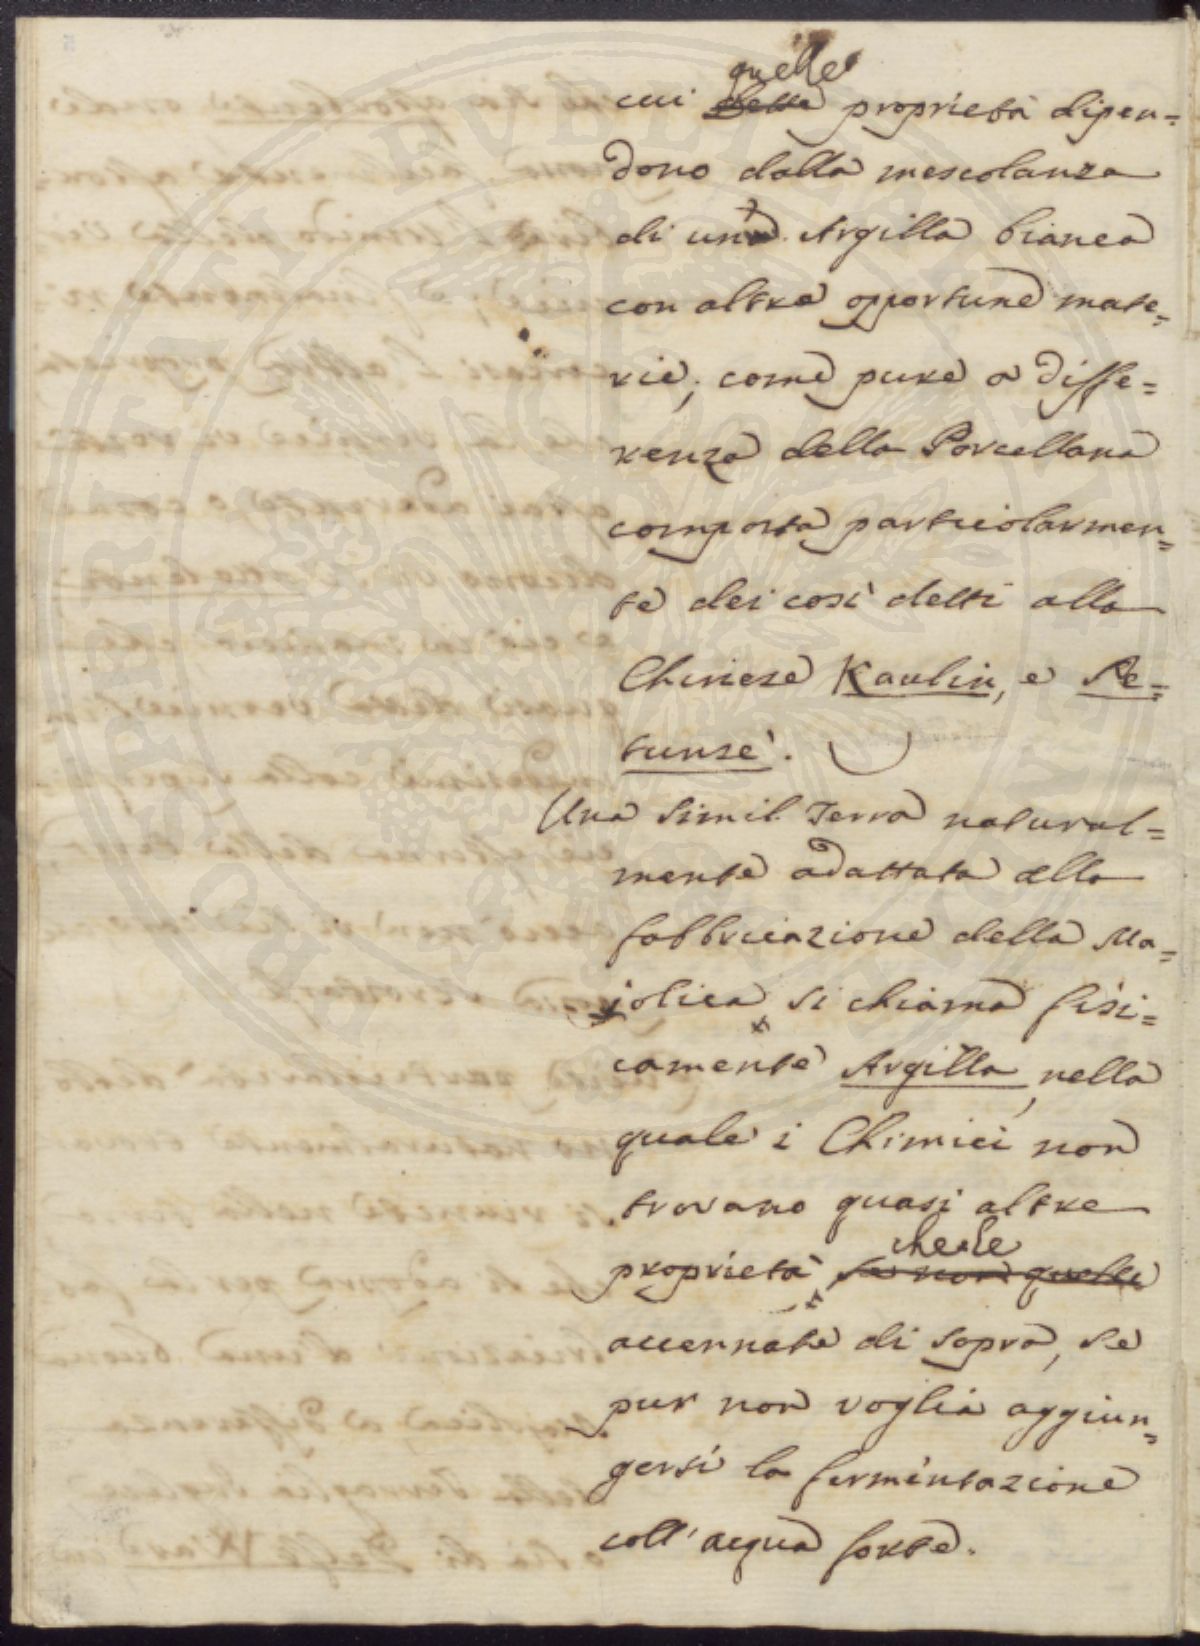 quelle
cui dette proprietà dipen=
dono dalla mescolanza
di una Argilla bianca
con altre opportune mate=
rie, come pure a diffe=
renza della Porcellana
composta particolarmen=
te dei così detti alla
Chinese Kaulin, e Pe=
tunse.
Una simil Terra natural=
mente adattata alla
fabbricazione della Ma=
jolica si chiama fisi=
camente Argilla, nella
quale i Chimici non
trovano quasi altre
che le
proprietà se non quelle
accennate di sopra, se
pur non voglia aggiun=
gersi la fermentazione
coll' acqua forte.